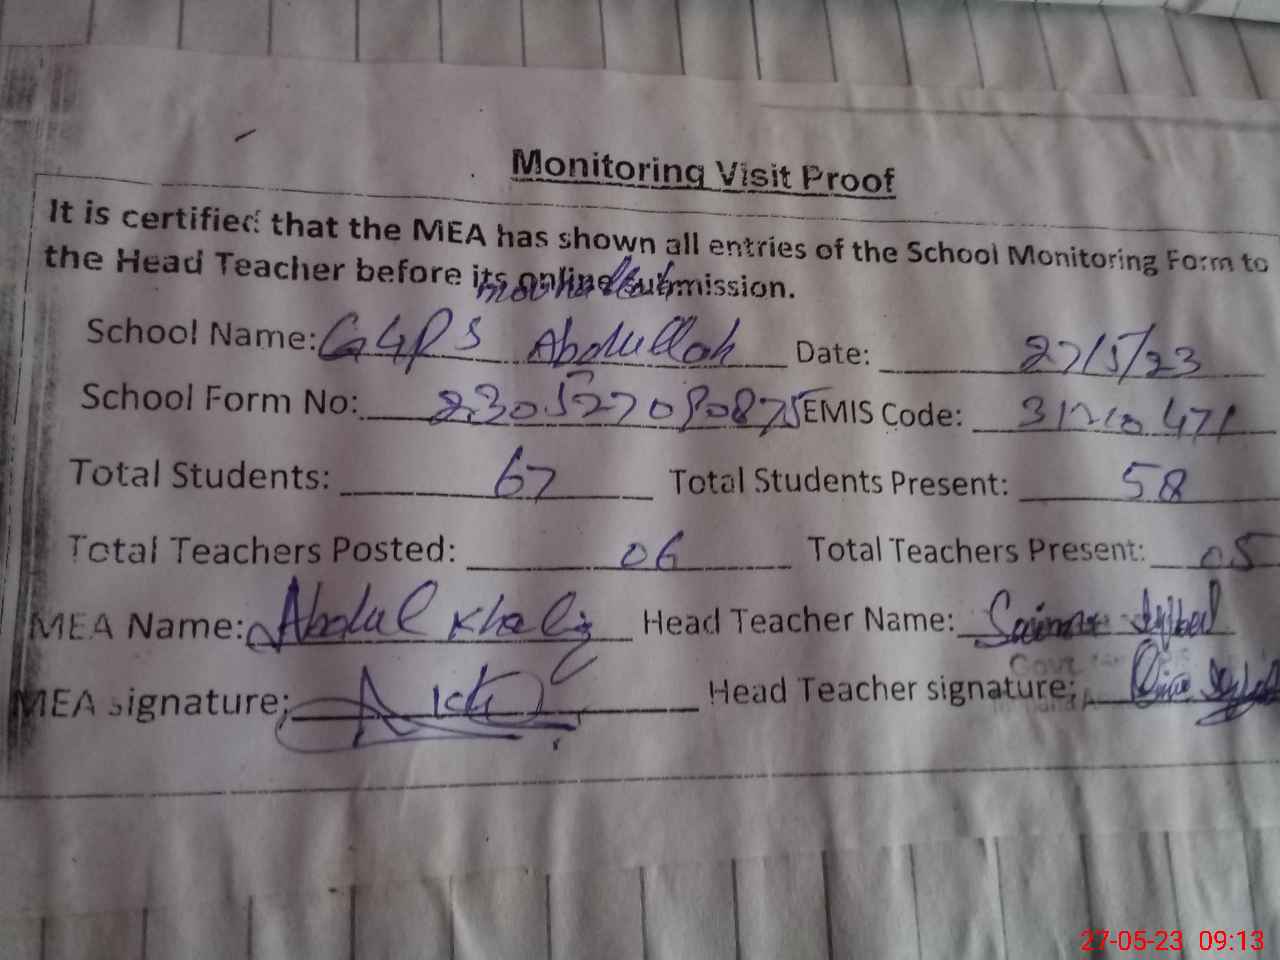 Monitoring Visit Proof
It is certified that the MEA has shown all entries of the School Monitoring Form to
the Head Teacher before its online submission.
School Name: GGPS Abdullah Date: 27/5/23
School Form No: 230527090875 EMIS Code: 31210471
Total Students: 67 Total Students Present: 58
Total Teachers Posted: 06 Total Teachers Present: 05
MEA Name: Abdul Khaliq Head Teacher Name: Saima
Govt.
MEA signature: Head Teacher signature:
27-05-23 09:13